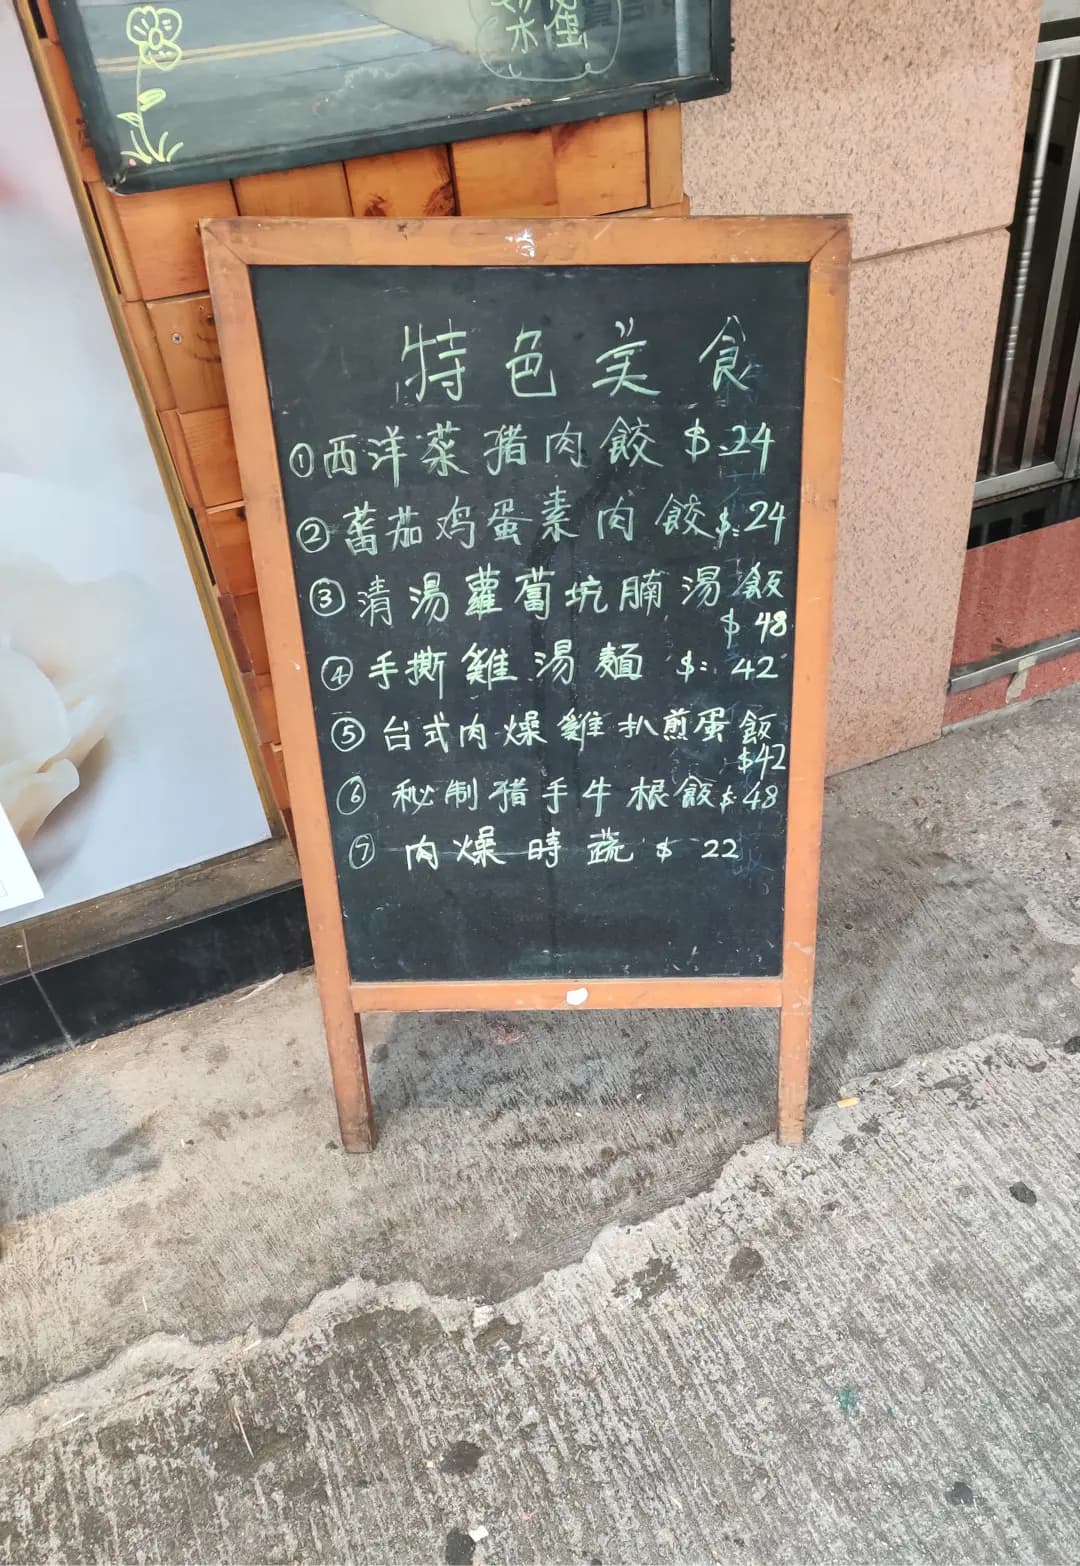 水 蛋
特色美食
①西洋菜猪肉餃 $:24
②蕃茄鸡蛋素肉餃$:24
③清湯蘿蔔坑腩湯飯
$48
④手撕雞湯麵 $: 42
⑤台式肉燥雞扒煎蛋飯
$42
⑥秘制猪手牛根飯$:48
⑦肉燥時蔬 $ 22